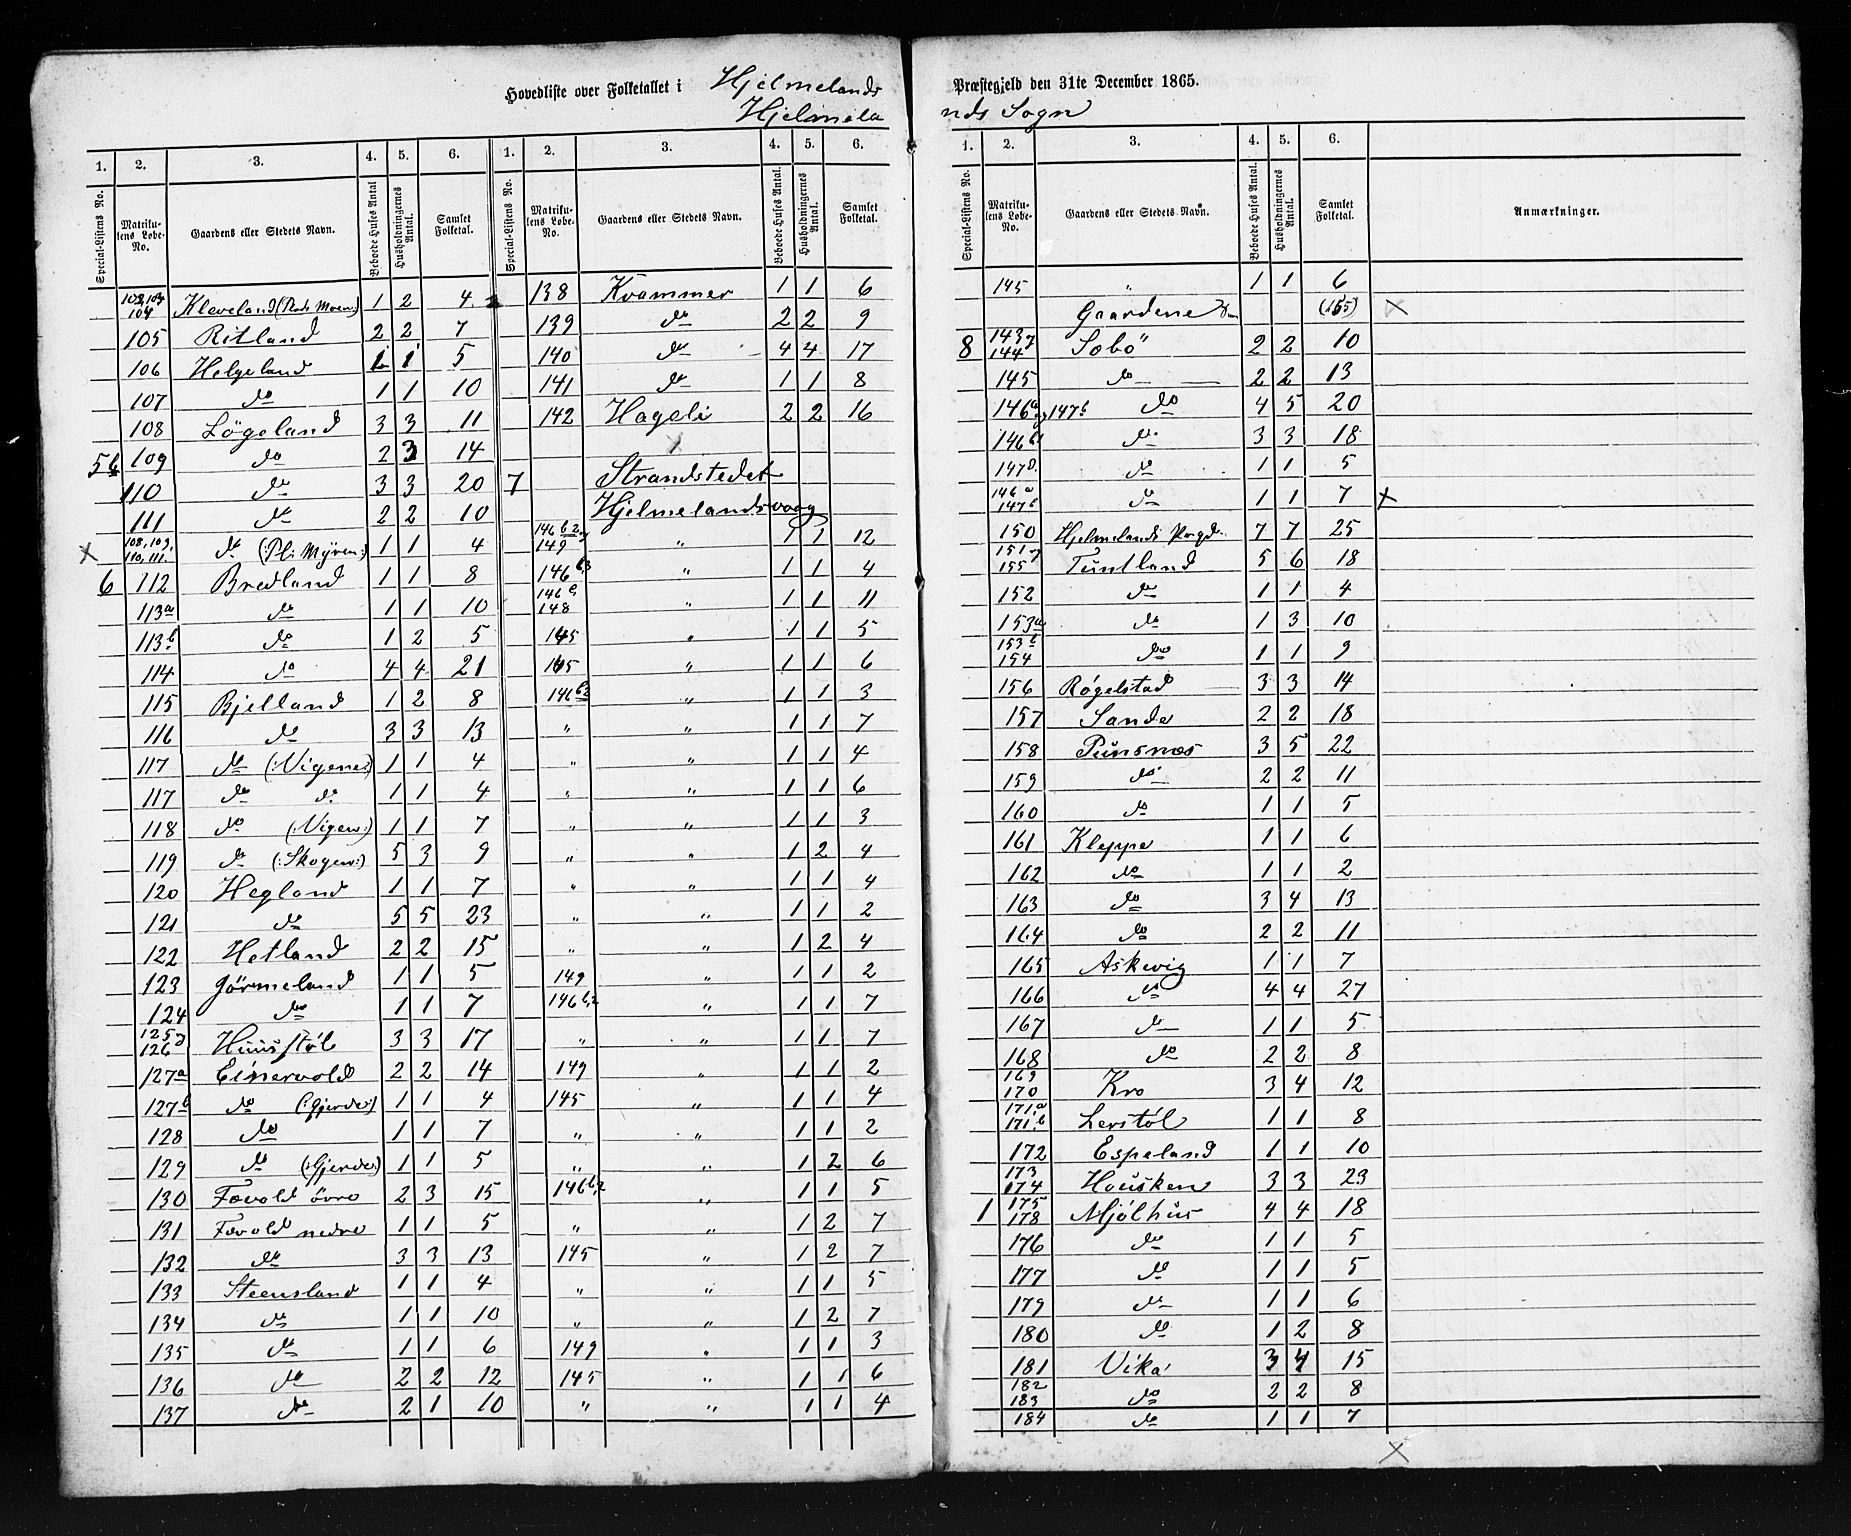 Hovedliste over Folketallet i Hjelmelands Præstegjeld den 31te December 1865.
Hjelmelands Sogn
1. 2. 3. 4. 5. 6. 1. 2. 3. 4. 5. 6.
Special-Listens No. Matrikulens Løbe-No. Gaardens eller Stedets Navn. Beboede Huses Antal Husholdningernes Antal. Samlet Folketal. Special-Listens No. Matrikulens Løbe-No. Gaardens eller Stedets Navn. Beboede Huses Antal. Husholdningernes Antal. Samlet Folketal.
102,103, 104 Kleveland (Plads Moen:) 1 2 4
105 Ritland 2 2 7
106 Helgeland 1 1 5
107 do 1 1 10
108 Lögeland 3 3 11
5b 109 do 2 3 14
110 do 3 3 20
111 do 2 2 10
× 108, 109, 110, 111. do (:Pl: Myren:) 1 1 4
6 112 Bredland 1 1 8
113a do 1 1 10
113b do 1 2 5
114 do 4 4 21
115 Bjelland 1 2 8
116 do 3 3 13
117 do (:Vigene:) 1 1 4
117 do do 1 1 4
118 do (:Vigen:) 1 1 7
119 do (:Skogen:) 5 3 9
120 Hegland 1 1 7
121 do 5 5 23
122 Hetland 2 2 15
123 Görmeland 1 1 5
124 do 1 1 7
125 og 126 Huusstöl 3 3 17
127a Einervold 2 2 14
127b do (:Gjerde:) 1 1 4
128 do 1 1 7
129 do (:Gjerde:) 1 1 5
130 Fævold övre 2 3 15
131 Fævold nedre 1 1 5
132 do 3 3 13
133 Steensland 1 1 4
134 do 1 1 10
135 do 1 1 6
136 do 2 2 12
137 do 2 1 10
138 Kvammer 1 1 6
139 do 2 2 9
140 do 4 4 17
141 do 1 1 8
142 Hageli 2 2 16
×
7 Strandstedet
Hjelmelandsvaag
146 b2 og 149 " 1 1 12
146 b3 " 1 1 4
146 b, 148 " 1 1 11
145 " 1 1 5
145 " 1 1 6
146 b3 " 1 1 3
" " 1 1 7
" " 1 1 4
" " 1 1 6
" " 1 1 3
" " 1 2 4
" " 1 1 4
" " 1 1 2
" " 1 2 4
149 " 1 1 2
146 b,2 " 1 1 7
" " 1 1 7
149 " 1 1 2
145 " 1 1 4
" " 1 1 2
" " 1 2 6
146 b,2 " 1 1 5
" " 1 2 7
145 " 1 2 7
" " 1 1 5
" " 1 2 7
149 " 1 1 3
145 " 1 1 6
" " 1 1 4
1. 2. 3. 4. 5. 6.
Special-Listens No. Matrikulens Løbe-No. Gaardens eller Stedets Navn. Beboede Huses Antal. Husholdningernes Antal. Samlet Folketal. Anmærkninger.
145 " 1 1 6
Gaardene (155) ×
8 143 og 144 Sobö 2 2 10
145 do 2 2 13
146a og 147b do 4 5 20
146 b1 do 3 3 18
147 do 1 1 5
146 a 147 b do 1 1 7 ×
150 Hjelmelands Prgd. 7 7 25
151 og 155 Tuntland 5 6 18
152 do 1 1 4
153a do 1 3 10
153 b 154 do 1 1 9
156 Røgelstad 3 3 14
157 Sande 2 2 18
158 Pünsnæs 3 5 22
159 do 2 2 11
160 do 1 1 5
161 Kleppe 1 1 6
162 do 1 1 2
163 do 3 4 13
164 do 2 2 11
165 Askevig 1 1 7
166 do 4 4 27
167 do 1 1 5
168 do 2 2 8
169 170 Kro 3 4 12
171,a 171,b Lerstöl 1 1 8
172 Espeland 1 1 10
173 174 Housken 3 3 23
1 175 178 Mjölhus 4 4 18
176 do 1 1 5
177 do 1 1 5
179 do 1 1 6
180 do 1 2 8
181 Vika 3 4 15
182 183 do 2 2 8
184 do 1 1 7
×